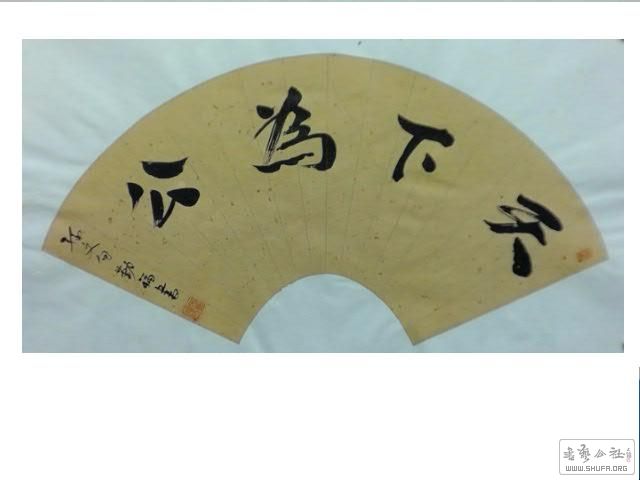 天下為公
孫文句
書藝公社
WWW.SHUFA.ORG